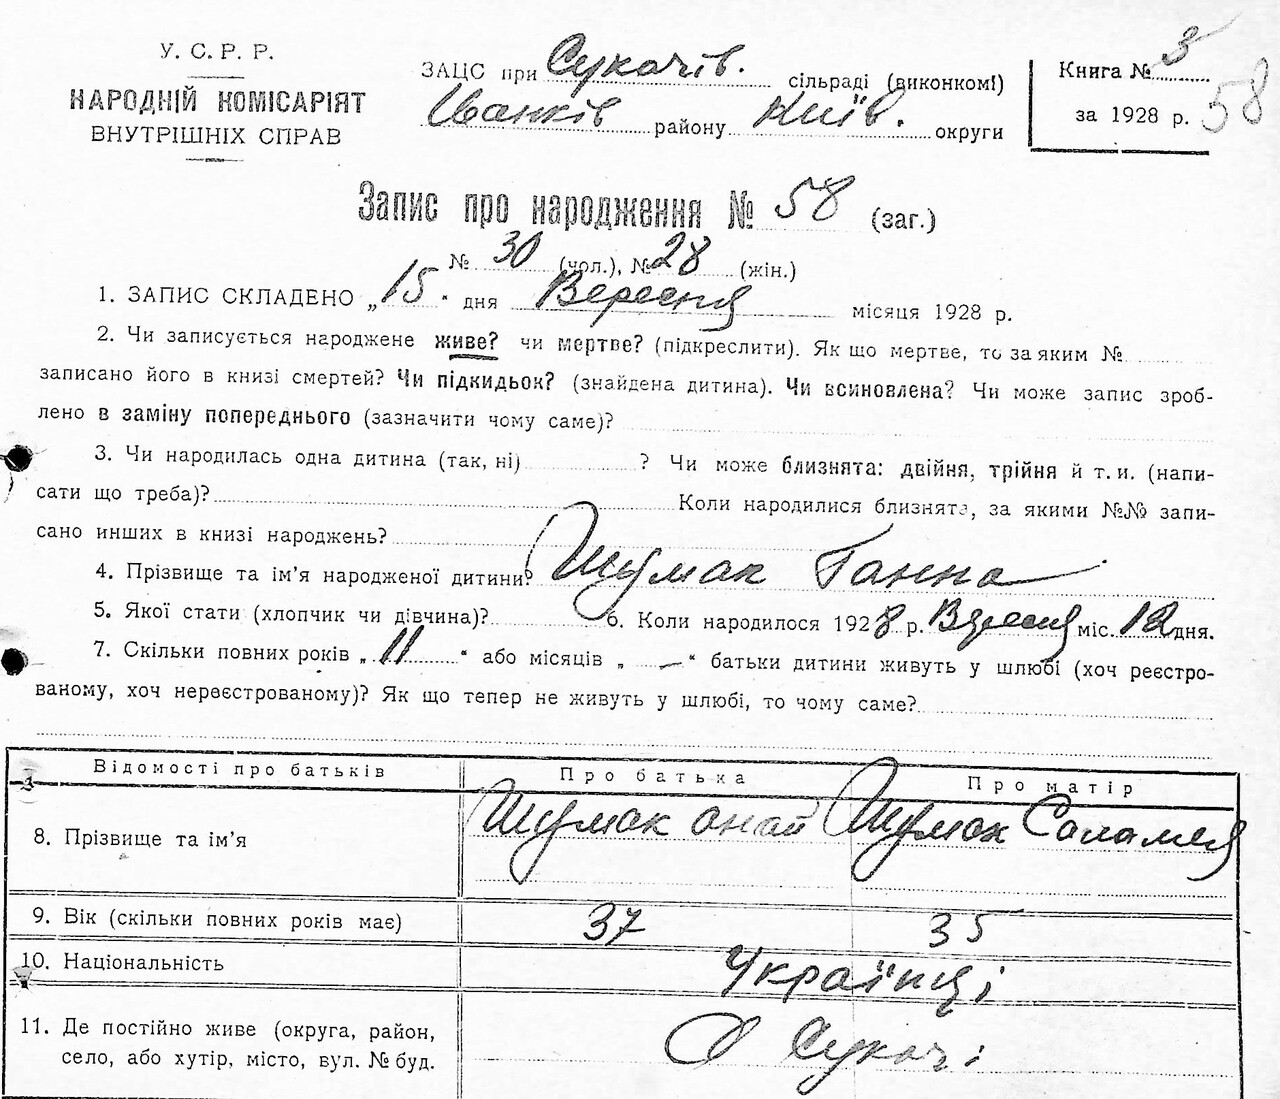 У. С. Р. Р.
НАРОДНІЙ КОМІСАРІЯТ
ВНУТРІШНІХ СПРАВ
ЗАЦС при Сукачів. сільраді (виконкомі)
Іванків району Київ. округи
Книга № 3
за 1928 р. 58
Запис про народження № 58 (заг.)
№ 30 (чол.), № 28 (жін.)
1. ЗАПИС СКЛАДЕНО „15" дня Вересня місяця 1928 р.
2. Чи записується народжене живе? чи мертве? (підкреслити). Як що мертве, то за яким №
записано його в книзі смертей? Чи підкидьок? (знайдена дитина). Чи всиновлена? Чи може запис зроб-
лено в заміну попереднього (зазначити чому саме)?
3. Чи народилась одна дитина (так, ні) ? Чи може близнята: двійня, трійня й т. и. (напи-
сати що треба)? Коли народилися близнята, за якими №№ запи-
сано инших в книзі народжень?
4. Прізвище та ім'я народженої дитини? Шумак Ганна
5. Якої стати (хлопчик чи дівчина)? 6. Коли народилося 1928 р. Вересня міс. 12 дня.
7. Скільки повних років „11" або місяців „—" батьки дитини живуть у шлюбі (хоч реєстро-
ваному, хоч нереєстрованому)? Як що тепер не живуть у шлюбі, то чому саме?
Відомості про батьків Про батька Про матір
8. Прізвище та ім'я Шумак Шумак Саламея
9. Вік (скільки повних років має) 37 35
10. Національність Українці
11. Де постійно живе (округа, район,
село, або хутір, місто, вул. № буд. Сукачі